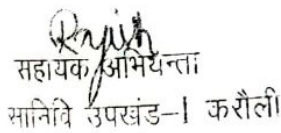 सहायक अभियन्ता
सानिवि उपखंड-I करौली